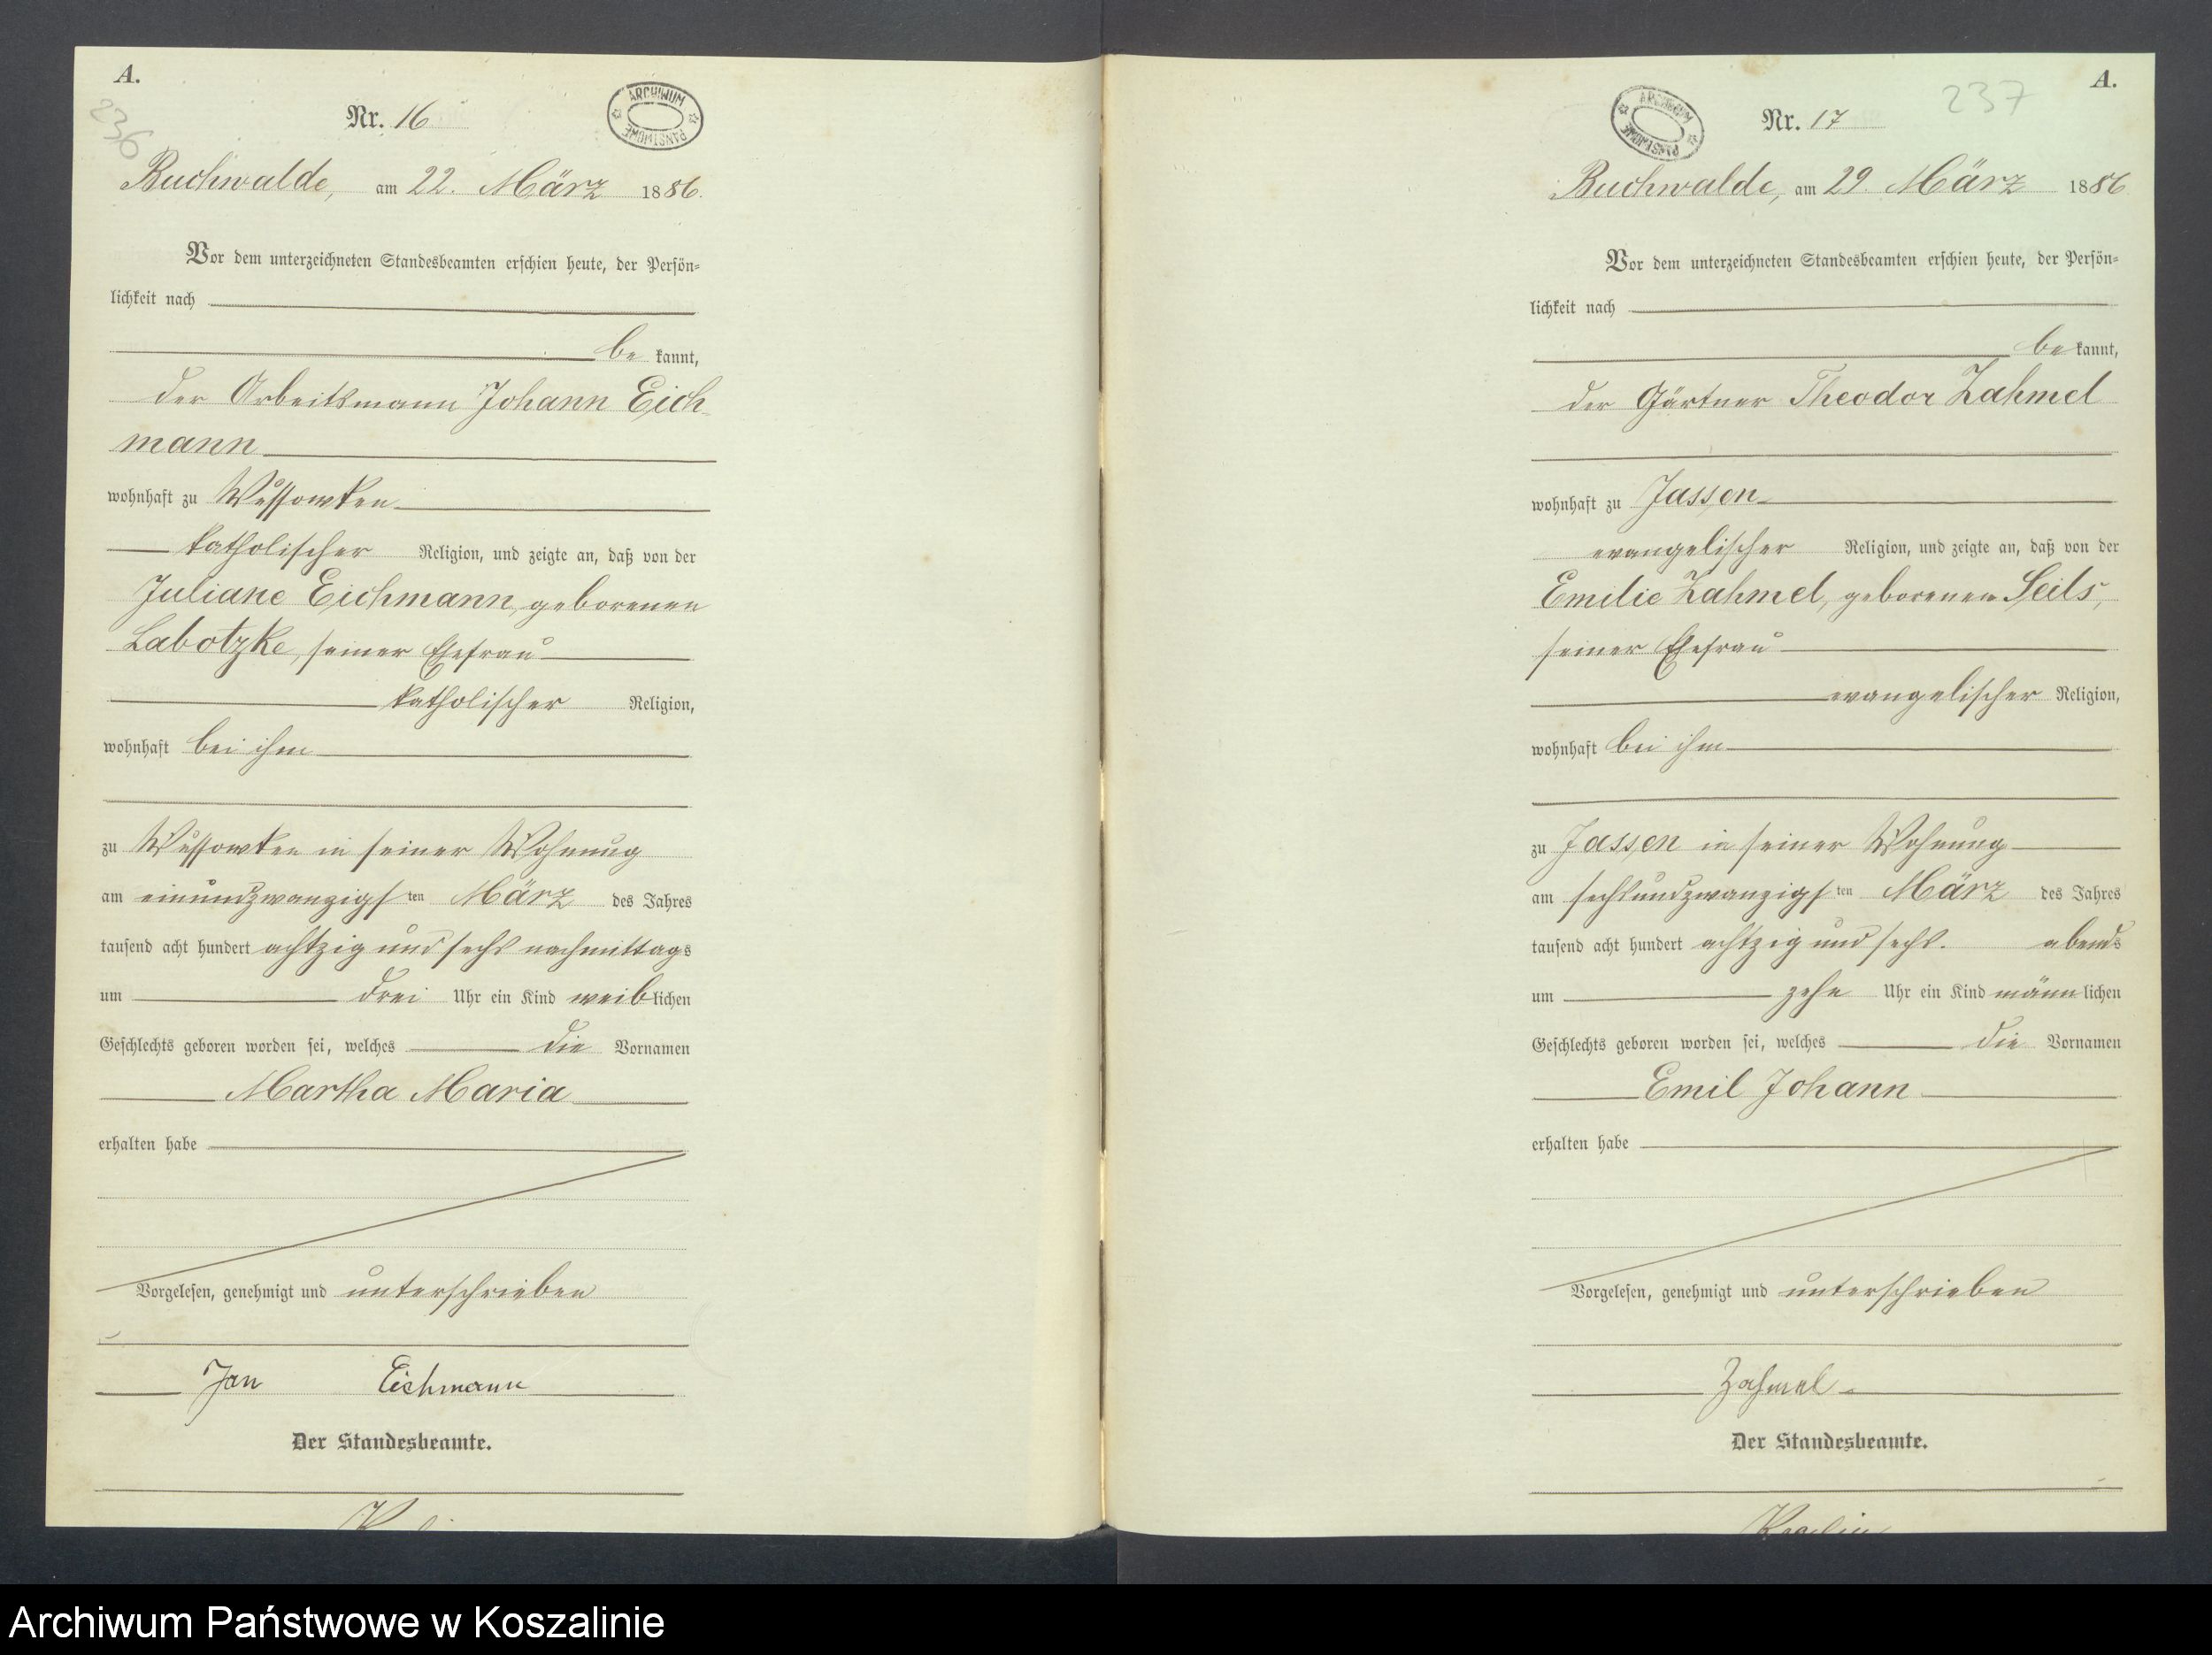 A.
236
Nr. 16
ARCHIWUM PAŃSTWOWE
Buchwalde, am 22. März 1886.
Vor dem unterzeichneten Standesbeamten erschien heute, der Persön-
lichkeit nach
be kannt,
der Arbeitsmann Johann Eich-
mann
wohnhaft zu Wussowken
katholischer Religion, und zeigte an, daß von der
Juliane Eichmann, geborenen
Labotzke, seiner Ehefrau
katholischer Religion,
wohnhaft bei ihm
zu Wussowken in seiner Wohnung
am einundzwanzigsten März des Jahres
tausend acht hundert achtzig und sechs nachmittags
um drei Uhr ein Kind weiblichen
Geschlechts geboren worden sei, welches die Vornamen
Martha Maria
erhalten habe
Vorgelesen, genehmigt und unterschrieben
Jan Eichmann
Der Standesbeamte.
A.
237
Nr. 17
ARCHIWUM PAŃSTWOWE
Buchwalde, am 29. März 1886
Vor dem unterzeichneten Standesbeamten erschien heute, der Persön-
lichkeit nach
be kannt,
der Gärtner Theodor Zahmel
wohnhaft zu Jassen
evangelischer Religion, und zeigte an, daß von der
Emilie Zahmel, geborenen Seils,
seiner Ehefrau
evangelischer Religion,
wohnhaft bei ihm
zu Jassen in seiner Wohnung
am sechsundzwanzigsten März des Jahres
tausend acht hundert achtzig und sechs. abends
um zehn Uhr ein Kind männlichen
Geschlechts geboren worden sei, welches die Vornamen
Emil Johann
erhalten habe
Vorgelesen, genehmigt und unterschrieben
Zahmel
Der Standesbeamte.
Archiwum Państwowe w Koszalinie